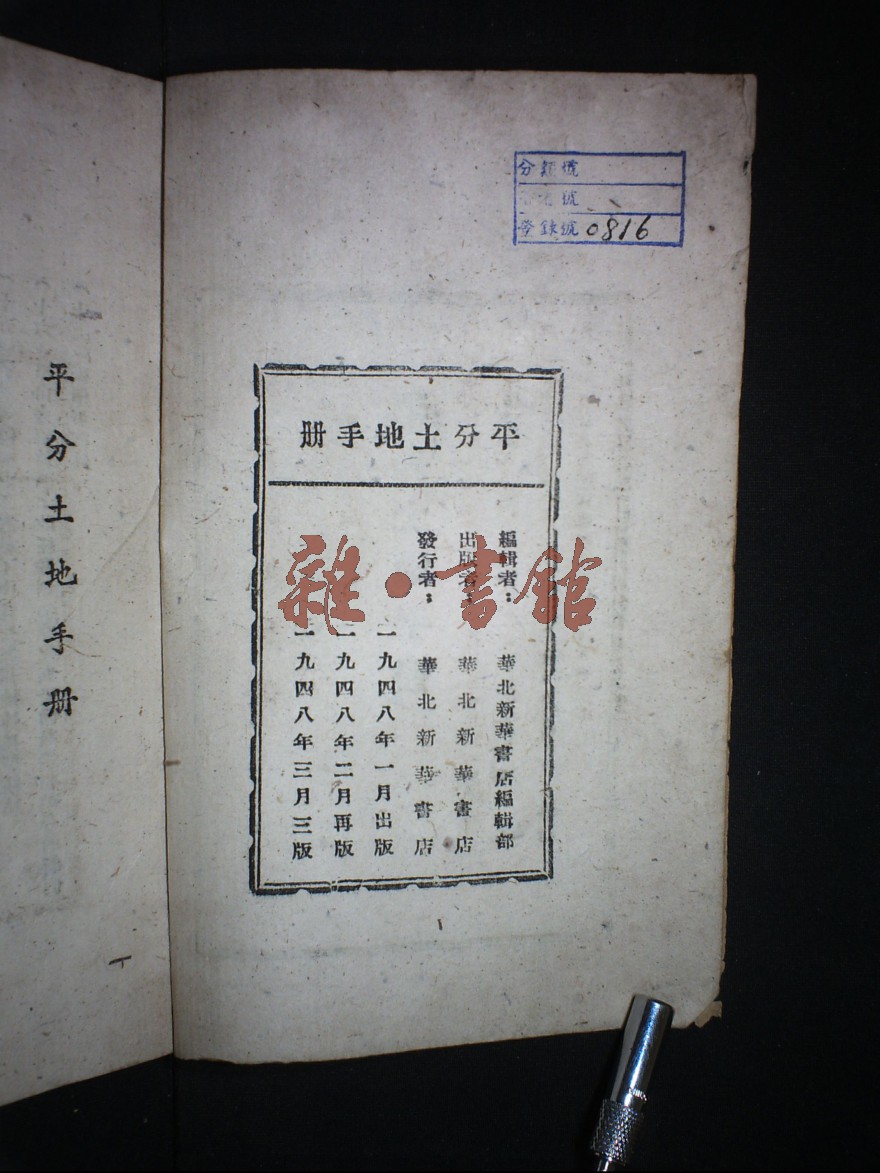 平分土地手册
分類號
號
登錄號 0816
平分土地手册
編輯者：華北新華書店編輯部
出版者：華北新華書店
發行者：華北新華書店
一九四八年一月出版
一九四八年二月再版
一九四八年三月三版
雜·書館